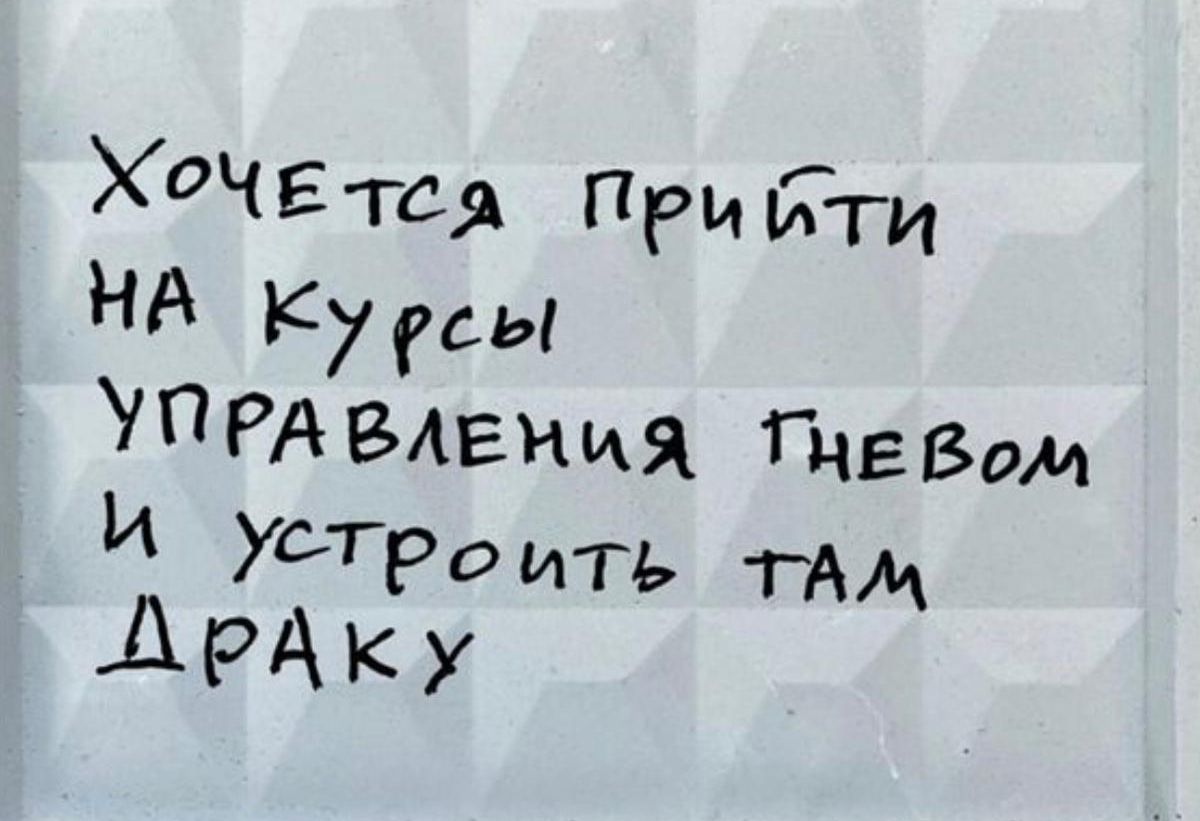 Хочется прийти
на курсы
управления гневом
и устроить там
драку